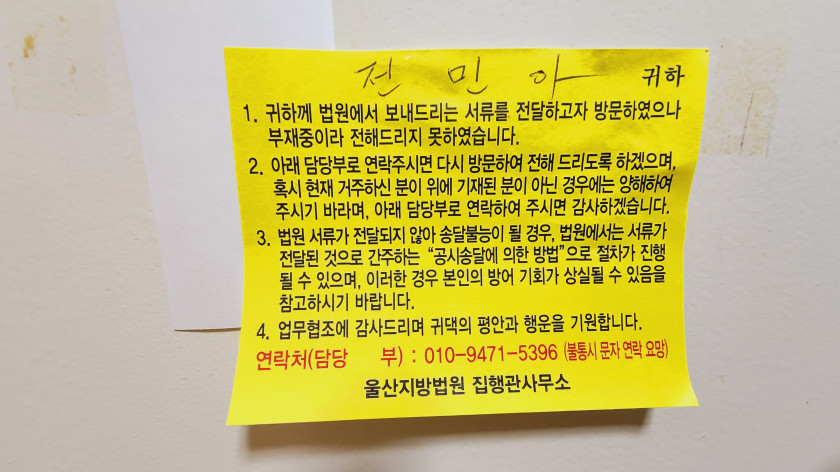 전 민 아 귀하
1. 귀하께 법원에서 보내드리는 서류를 전달하고자 방문하였으나
부재중이라 전해드리지 못하였습니다.
2. 아래 담당부로 연락주시면 다시 방문하여 전해 드리도록 하겠으며,
혹시 현재 거주하신 분이 위에 기재된 분이 아닌 경우에는 양해하여
주시기 바라며, 아래 담당부로 연락하여 주시면 감사하겠습니다.
3. 법원 서류가 전달되지 않아 송달불능이 될 경우, 법원에서는 서류가
전달된 것으로 간주하는 “공시송달에 의한 방법”으로 절차가 진행
될 수 있으며, 이러한 경우 본인의 방어 기회가 상실될 수 있음을
참고하시기 바랍니다.
4. 업무협조에 감사드리며 귀댁의 평안과 행운을 기원합니다.
연락처(담당 부) : 010-9471-5396 (불통시 문자 연락 요망)
울산지방법원 집행관사무소